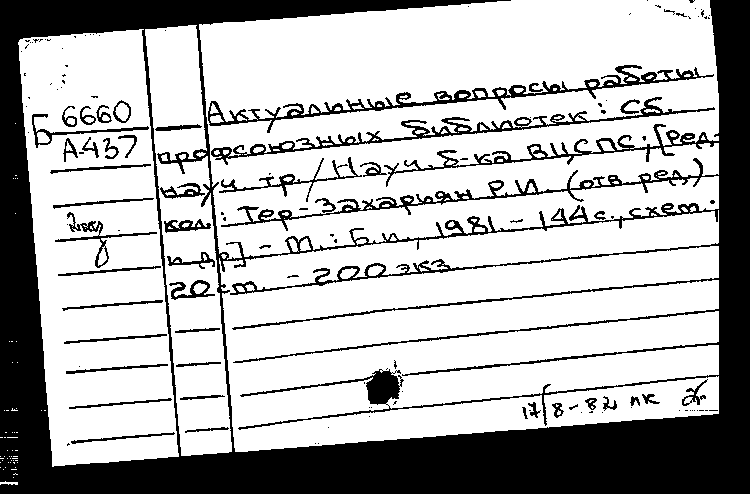 Б 6660
А437
Актуальные вопросы работы
профсоюзных библиотек: Сб.
науч. тр./Науч. б-ка ВЦСПС; [Ред.-
кол.: Тер-Захарьян Р.И. (отв. ред.)
и др] - М.: Б.и., 1981. - 144 с., схем.;
20 см. - 200 экз.
17/8-82 пк